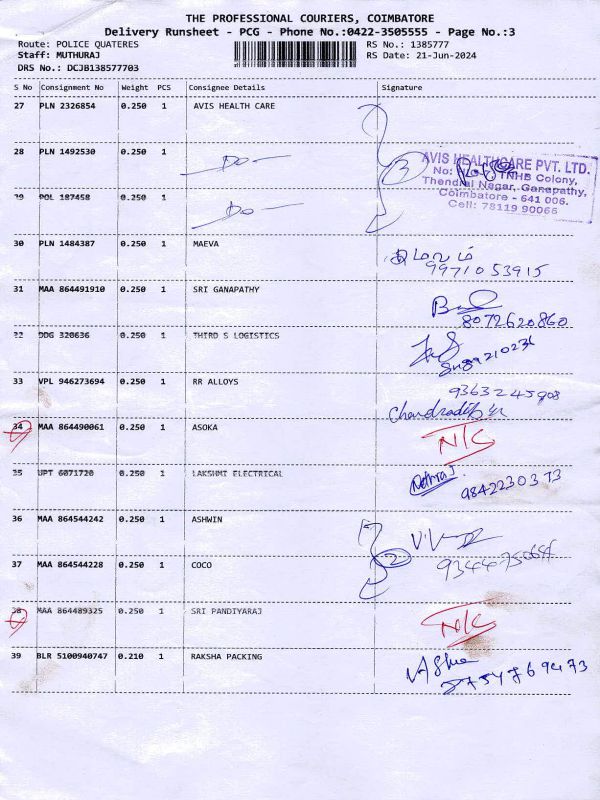 THE PROFESSIONAL COURIERS, COIMBATORE
Delivery Runsheet - PCG - Phone No.:0422-3505555 - Page No.:3
Route: POLICE QUATERES RS No.: 1385777
Staff: MUTHURAJ RS Date: 21-Jun-2024
DRS No.: DCJB138577703
S No Consignment No Weight PCS Consignee Details Signature
27 PLN 2326854 0.250 1 AVIS HEALTH CARE
28 PLN 1492530 0.250 1 Do 3
AVIS HEALTHCARE PVT. LTD.
No: TNHB Colony,
Thendral Nagar, Ganapathy,
Coimbatore - 641 006.
Cell: 78119 90066
29 POL 187458 0.250 1 Do
30 PLN 1484387 0.250 1 MAEVA
9971053915
31 MAA 864491910 0.250 1 SRI GANAPATHY
8072620860
32 DDG 320636 0.250 1 THIRD S LOGISTICS
33 VPL 946273694 0.250 1 RR ALLOYS
34 MAA 864490061 0.250 1 ASOKA N/C
35 UPT 6071720 0.250 1 LAKSHMI ELECTRICAL
9842230373
36 MAA 864544242 0.250 1 ASHWIN
2
37 MAA 864544228 0.250 1 COCO
38 MAA 864489325 0.250 1 SRI PANDIYARAJ N/C
39 BLR 5100940747 0.210 1 RAKSHA PACKING